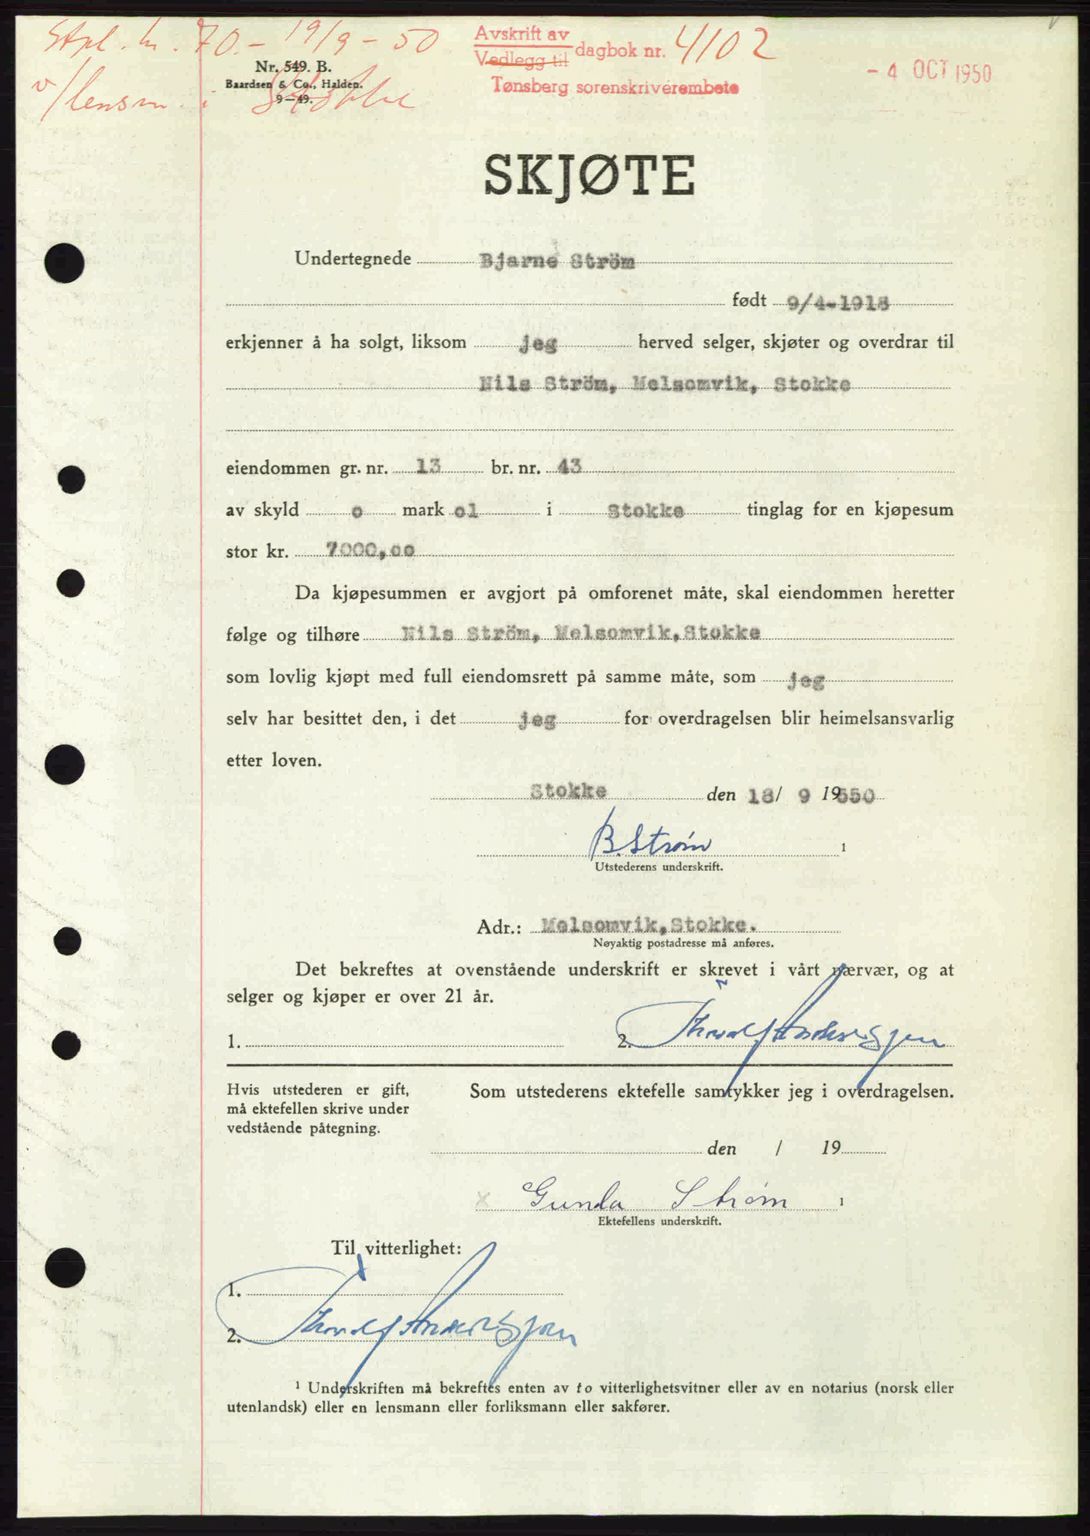 Stpl. kr. 70.- 19/9-50
v/lensm. i Stokke
Nr. 549. B.
Baardsen & Co., Halden.
9—49.
Avskrift av
Vedlegg til dagbok nr. 4102
Tønsberg sorenskriverembete
- 4 OCT 1950
SKJØTE
Undertegnede Bjarne Ström
født 9/4-1918
erkjenner å ha solgt, liksom jeg herved selger, skjøter og overdrar til
Nils Ström, Melsomvik, Stokke
eiendommen gr. nr. 13 br. nr. 43
av skyld o mark o1 i Stokke tinglag for en kjøpesum
stor kr. 7000,oo
Da kjøpesummen er avgjort på omforenet måte, skal eiendommen heretter
følge og tilhøre Nils Ström, Melsomvik,Stokke
som lovlig kjøpt med full eiendomsrett på samme måte, som jeg
selv har besittet den, i det jeg for overdragelsen blir heimelsansvarlig
etter loven.
Stokke den 18/ 9 19550
B. Strøm 1
Utstederens underskrift.
Adr.: Melsomvik,Stokke.
Nøyaktig postadresse må anføres.
Det bekreftes at ovenstående underskrift er skrevet i vårt nærvær, og at
selger og kjøper er over 21 år.
1. 2. Thorolf Anderssen
Hvis utstederen er gift,
må ektefellen skrive under
vedstående påtegning.
Som utstederens ektefelle samtykker jeg i overdragelsen.
den / 19
x Gunda Strøm 1
Ektefellens underskrift.
Til vitterlighet:
1.
2. Thorolf Anderssen
1 Underskriften må bekreftes enten av to vitterlighetsvitner eller av en notarius (norsk eller
utenlandsk) eller en lensmann eller forliksmann eller sakfører.